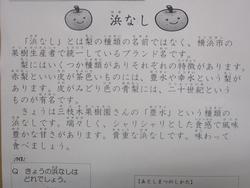 浜なし
「浜なし」とは梨の種類の名前ではなく、横浜市の
果樹生産者で統一しているブランド名です。
梨にはいくつか種類がありそれぞれの特徴があります。
赤梨といい皮が茶色いものには、豊水や幸水という梨が
あります。皮がみどり色の青梨には、二十世紀という
ものが有名です。
きょうは三枝木果樹園さんの「豊水」という種類の
浜なしです。瑞々しく、シャリシャリとした食感で風味
豊かな甘さがあります。貴重な浜なしです。味わって
食べましょう。
Q きょうの浜なしは
どれでしょう。
【あとしまつのしかた】